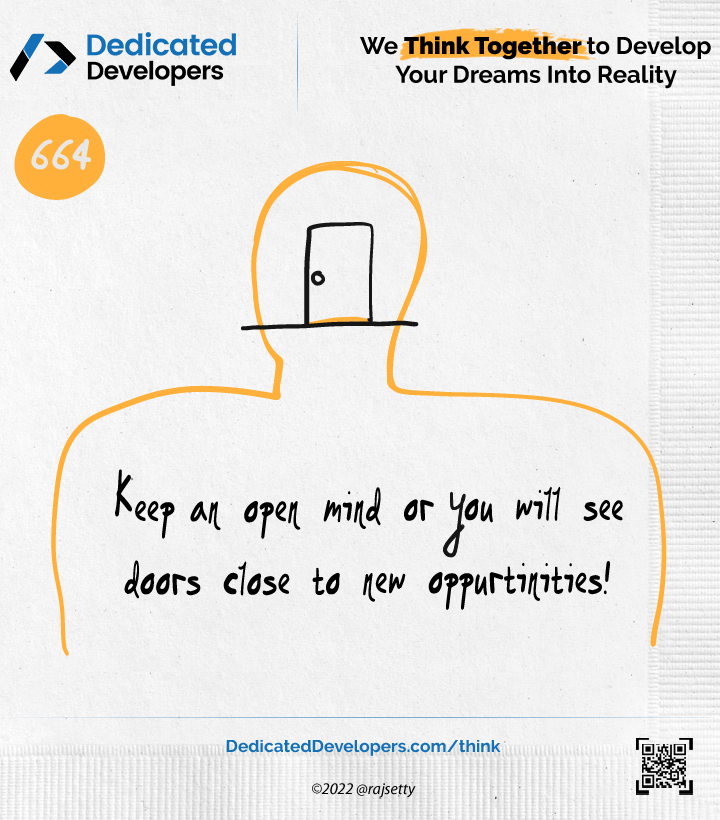 Dedicated
Developers
We Think Together to Develop
Your Dreams Into Reality
664
Keep an open mind or you will see
doors close to new oppurtinities!
DedicatedDevelopers.com/think
©2022 @rajsetty